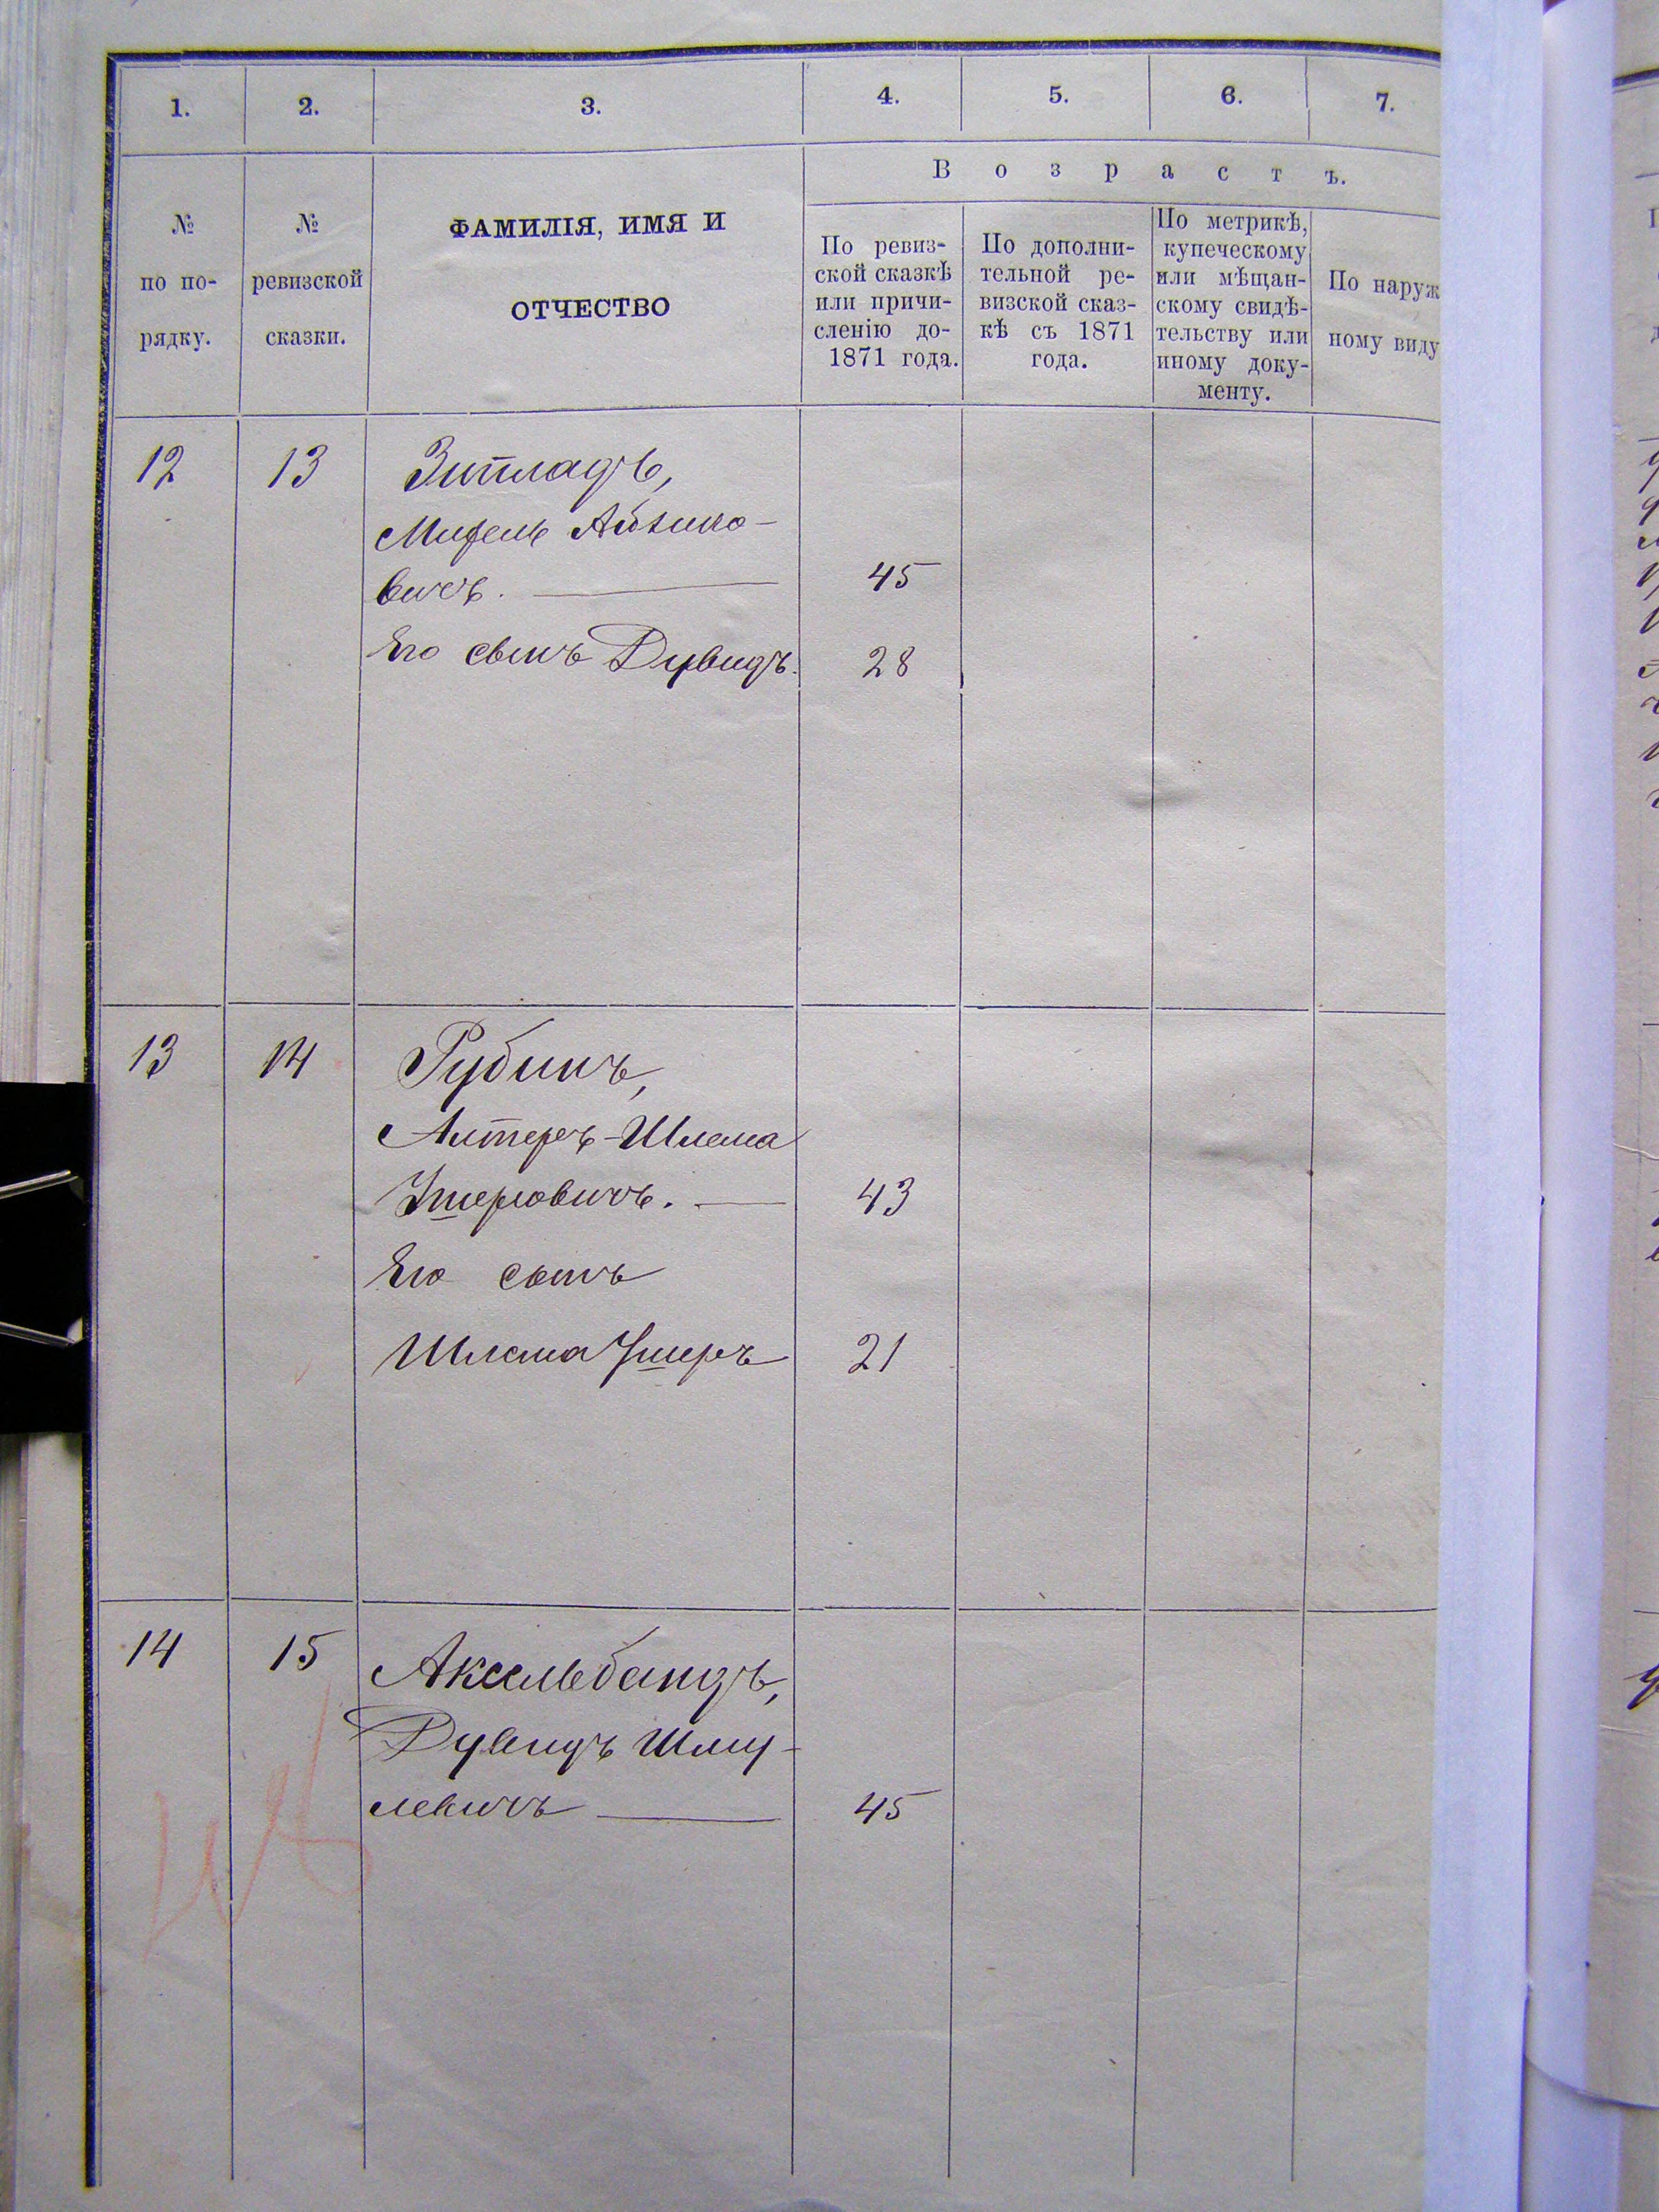 1. 2. 3. 4. 5. 6. 7.
В о з р а с т ъ.
№
по по-
рядку.
№
ревизской
сказки.
ФАМИЛІЯ, ИМЯ И
ОТЧЕСТВО
По ревиз-
ской сказкѣ
или причи-
сленію до-
1871 года.
По дополни-
тельной ре-
визской сказ-
кѣ съ 1871
года.
По метрикѣ,
купеческому
или мѣщан-
скому свидѣ-
тельству или
иному доку-
менту.
По наруж
ному виду
12 13 Зитладъ,
Айзико-
вичъ. 45
Его сынъ Дувидъ. 28
13 14 Рубинъ,
Алтеръ-Шлема
Ушеровичъ. 43
Его сынъ
Шлема Ушеръ 21
14 15 Аксельбандъ,
Дувидъ Шму-
левичъ 45